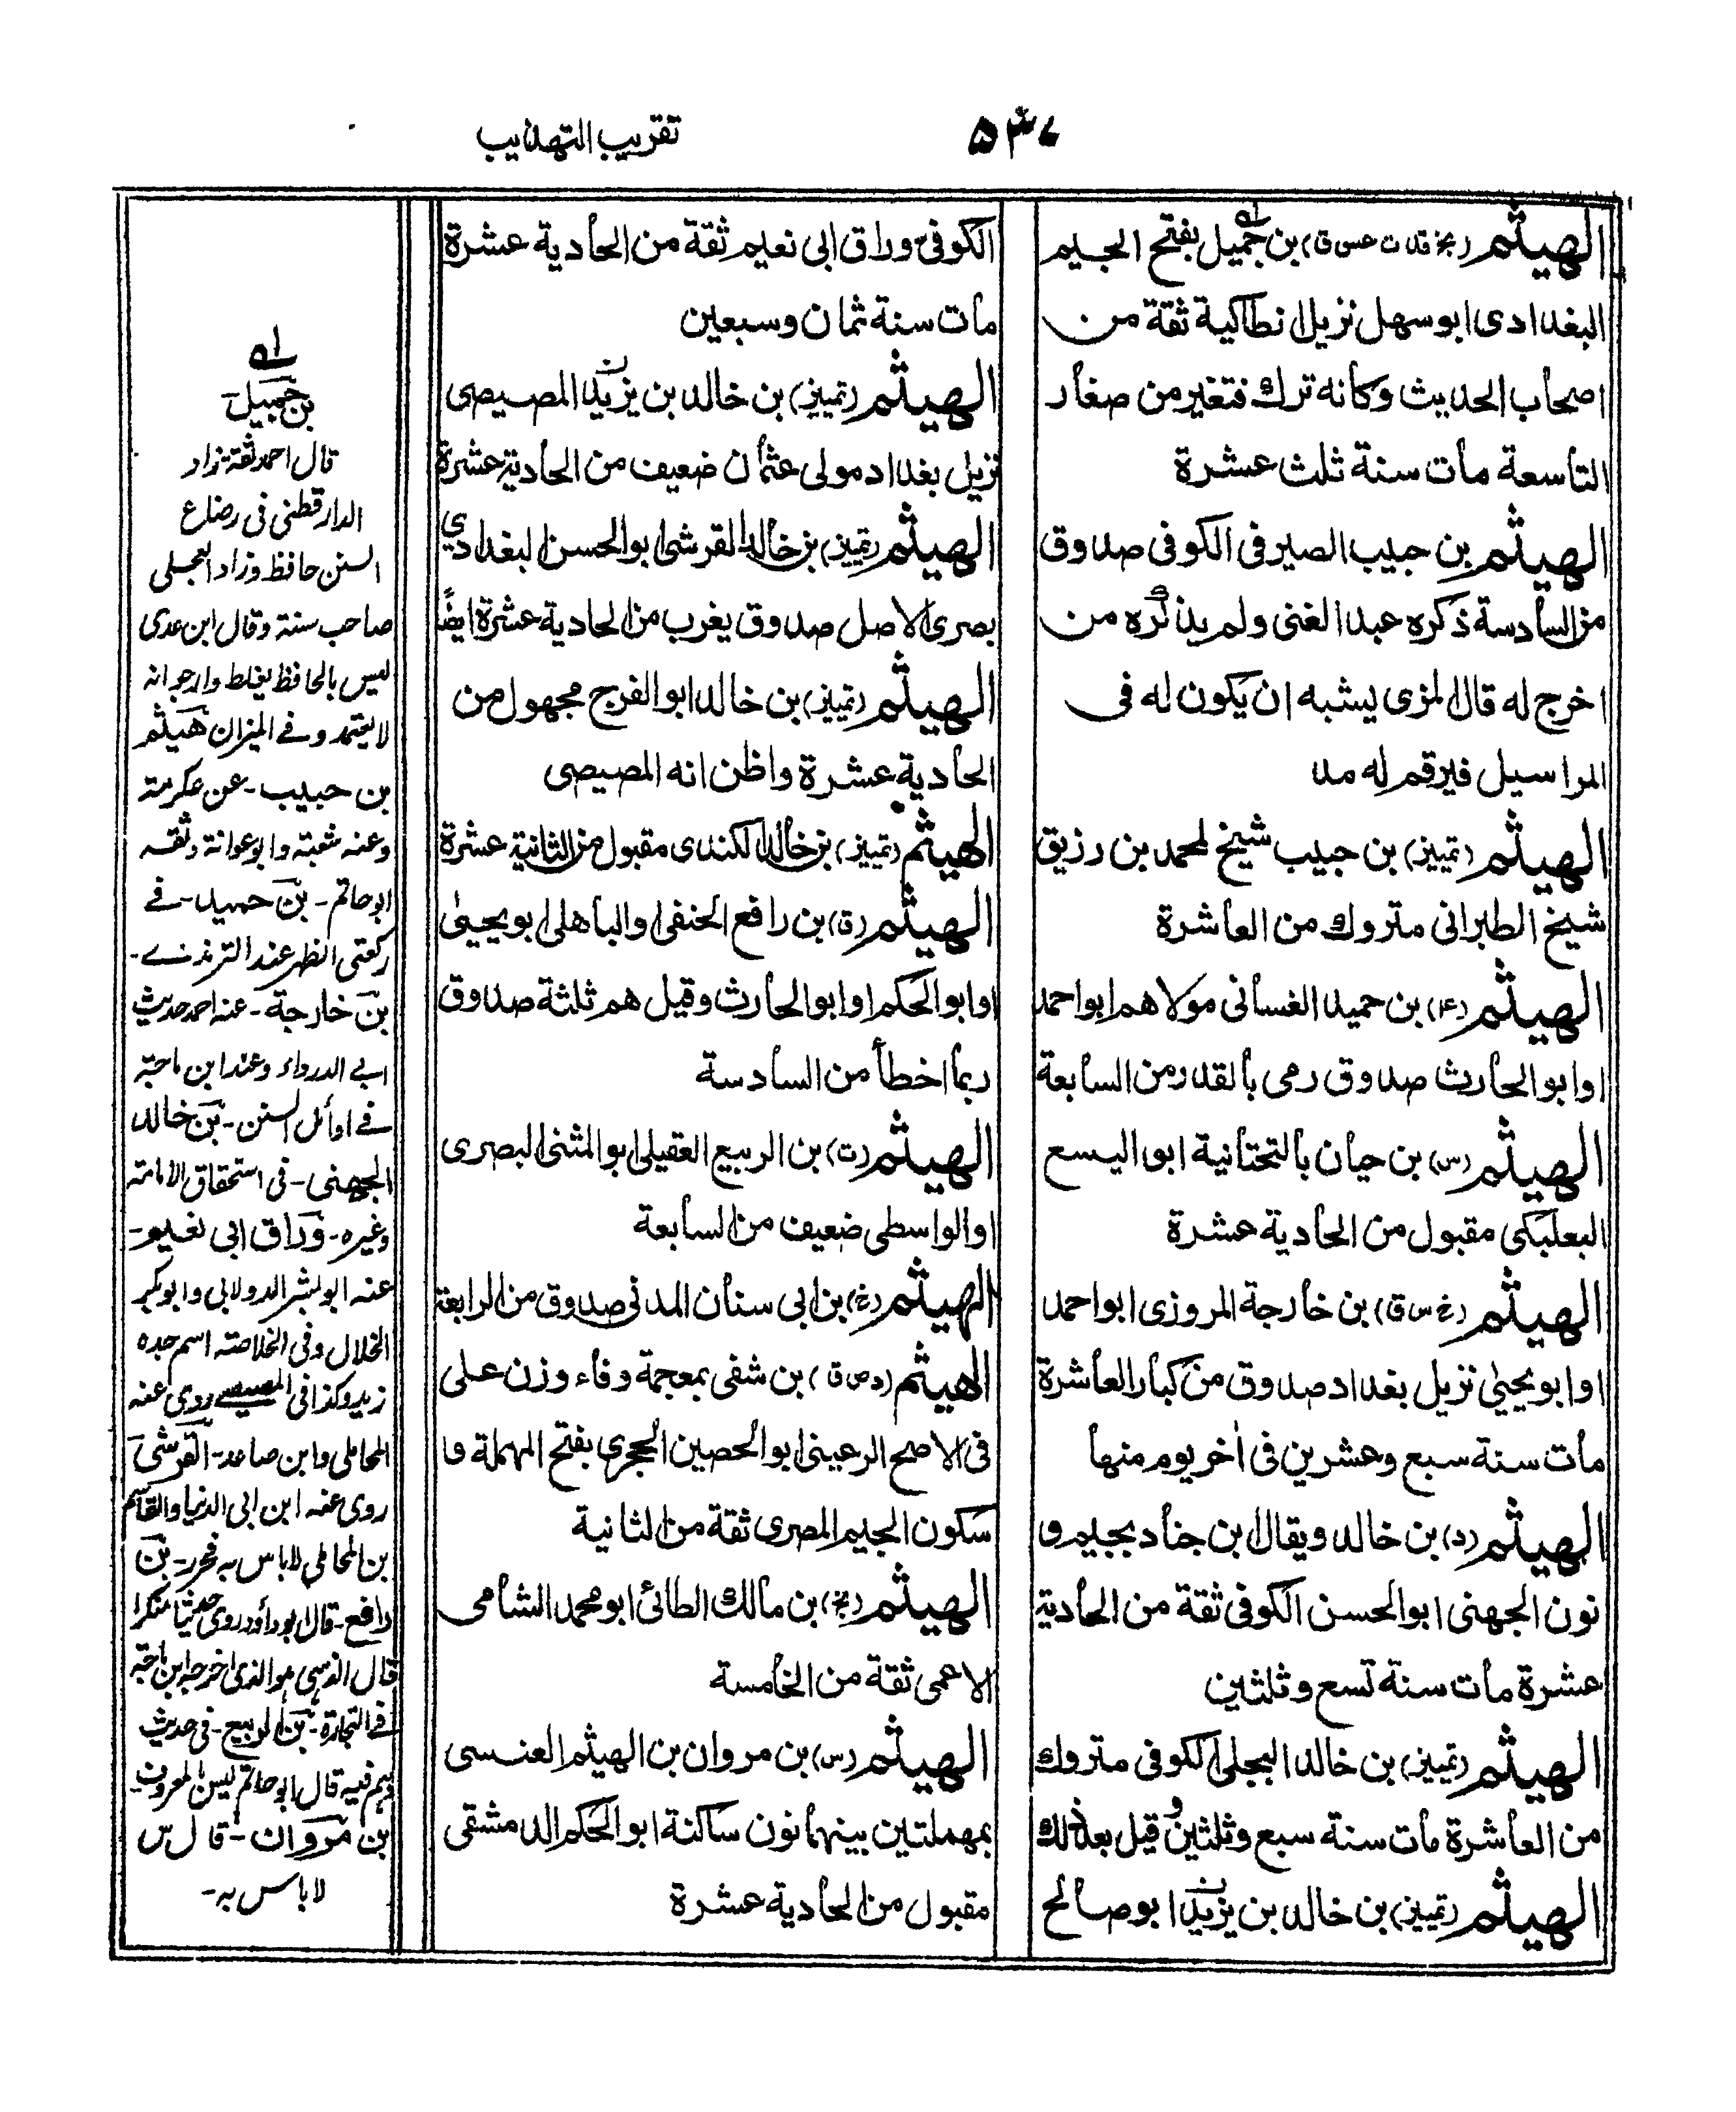 ٥٣٧
تقريب التهذيب
الهيثم (بخ قد ت عس ق) بن جميل بفتح الجيم
البغدادى ابو سهل نزيل انطاكية ثقة من
اصحاب الحديث وكانه ترك فتغير من صغار
التاسعة مات سنة ثلث عشرة
الهيثم بن حبيب الصيرفى الكوفى صدوق
من السادسة ذكره عبد الغنى ولم يذكره من
اخرج له قال المزى يشبه ان يكون له فى
المراسيل فيرقم له مد
الهيثم (تمييز) بن حبيب شيخ لمحمد بن رزيق
شيخ الطبرانى متروك من العاشرة
الهيثم (عه) بن حميد الغسانى مولاهم ابو احمد
او ابو الحارث صدوق رمى بالقدر من السابعة
الهيثم (س) بن حيان بالتحتانية ابو اليسع
البعلبكى مقبول من الحادية عشرة
الهيثم (خ س ق) بن خارجة المروزى ابو احمد
او ابو يحيى نزيل بغداد صدوق من كبار العاشرة
مات سنة سبع وعشرين فى اٰخر يوم منها
الهيثم (د) بن خالد ويقال ابن جناد بجيم و
نون الجهنى ابو الحسن الكوفى ثقة من الحادية
عشرة مات سنة تسع وثلثين
الهيثم (تمييز) بن خالد البجلى الكوفى متروك
من العاشرة مات سنة سبع وثلثين وقيل بعد ذلك
الهيثم (تمييز) بن خالد بن يزيد ابو صالح
الكوفى وراق ابى نعيم ثقة من الحادية عشرة
مات سنة ثمان وسبعين
الهيثم (تمييز) بن خالد بن يزيد المصيصى
نزيل بغداد مولى عثمان ضعيف من الحادية عشرة
الهيثم (تمييز) بن خالد القرشى ابو الحسن البغدادي
بصرى الاصل صدوق يغرب من الحادية عشرة ايضًا
الهيثم (تمييز) بن خالد ابو الفرج مجهول من
الحادية عشرة واظن انه المصيصى
الهيثم (تمييز) بن خالد الكندى مقبول من الثانية عشرة
الهيثم (ق) بن رافع الحنفى او الباهلى ابو يحيىٰ
او ابو الحكم او ابو الحارث وقيل هم ثلثة صدوق
ربما اخطأ من السادسة
الهيثم (ت) بن الربيع العقيلى ابو المثنى البصرى
او الواسطى ضعيف من السابعة
الهيثم (خ) بن ابى سنان المدنى صدوق من الرابعة
الهيثم (د س ق) بن شفى بمعجمة وفاء وزن على
فى الاصح الرعينى ابو الحصين الحجرى بفتح المهملة و
سكون الجيم المصرى ثقة من الثانية
الهيثم (بخ) بن مالك الطائى ابو محمد الشامى
الاعمى ثقة من الخامسة
الهيثم (س) بن مروان بن الهيثم العنسى
بمهملتين بينهما نون ساكنة ابو الحكم الدمشقى
مقبول من الحادية عشرة
له
بن جميل
قال احمد ثقة زاد
الدارقطنى فى رضاع
السنن حافظ وزاد العجلى
صاحب سنة وقال ابن عدى
ليس بالحافظ يغلط وارجو انه
لا يتعمد وفے الميزان هيثم
بن حبيب - عن عكرمة
وعنه شعبة وابو عوانة وثقه
ابو حاتم - بن حميد - فے
ركعتى الظهر عند الترمذے -
بن خارجة - عنه احمد حديث
ابے الدرداء وعند ابن ماجة
فے اوائل السنن - بن خالد
الجهنى - فى استحقاق الامامة
وغيره - وراق ابى نعيم -
عنه ابو بشر الدولابى وابو بكر
الخلال وفى الخلاصة اسم جده
زيد وكذا فى المصيصے روى عنه
المحاملى وابن صاعد - القرشى
روى عنه ابن ابى الدنيا والقاسم
بن المحاملى لا باس به فحرر - بن
رافع - قال ابو داؤد روى حديثا منكرا
قال الذهبى هو الذى اخرجه ابن ماجة
فے التجارة - بن الربيع - فى حديث
يهم فيه قال ابو حاتم ليس بالمعروف
بن مروان - قال س
لا باس به -